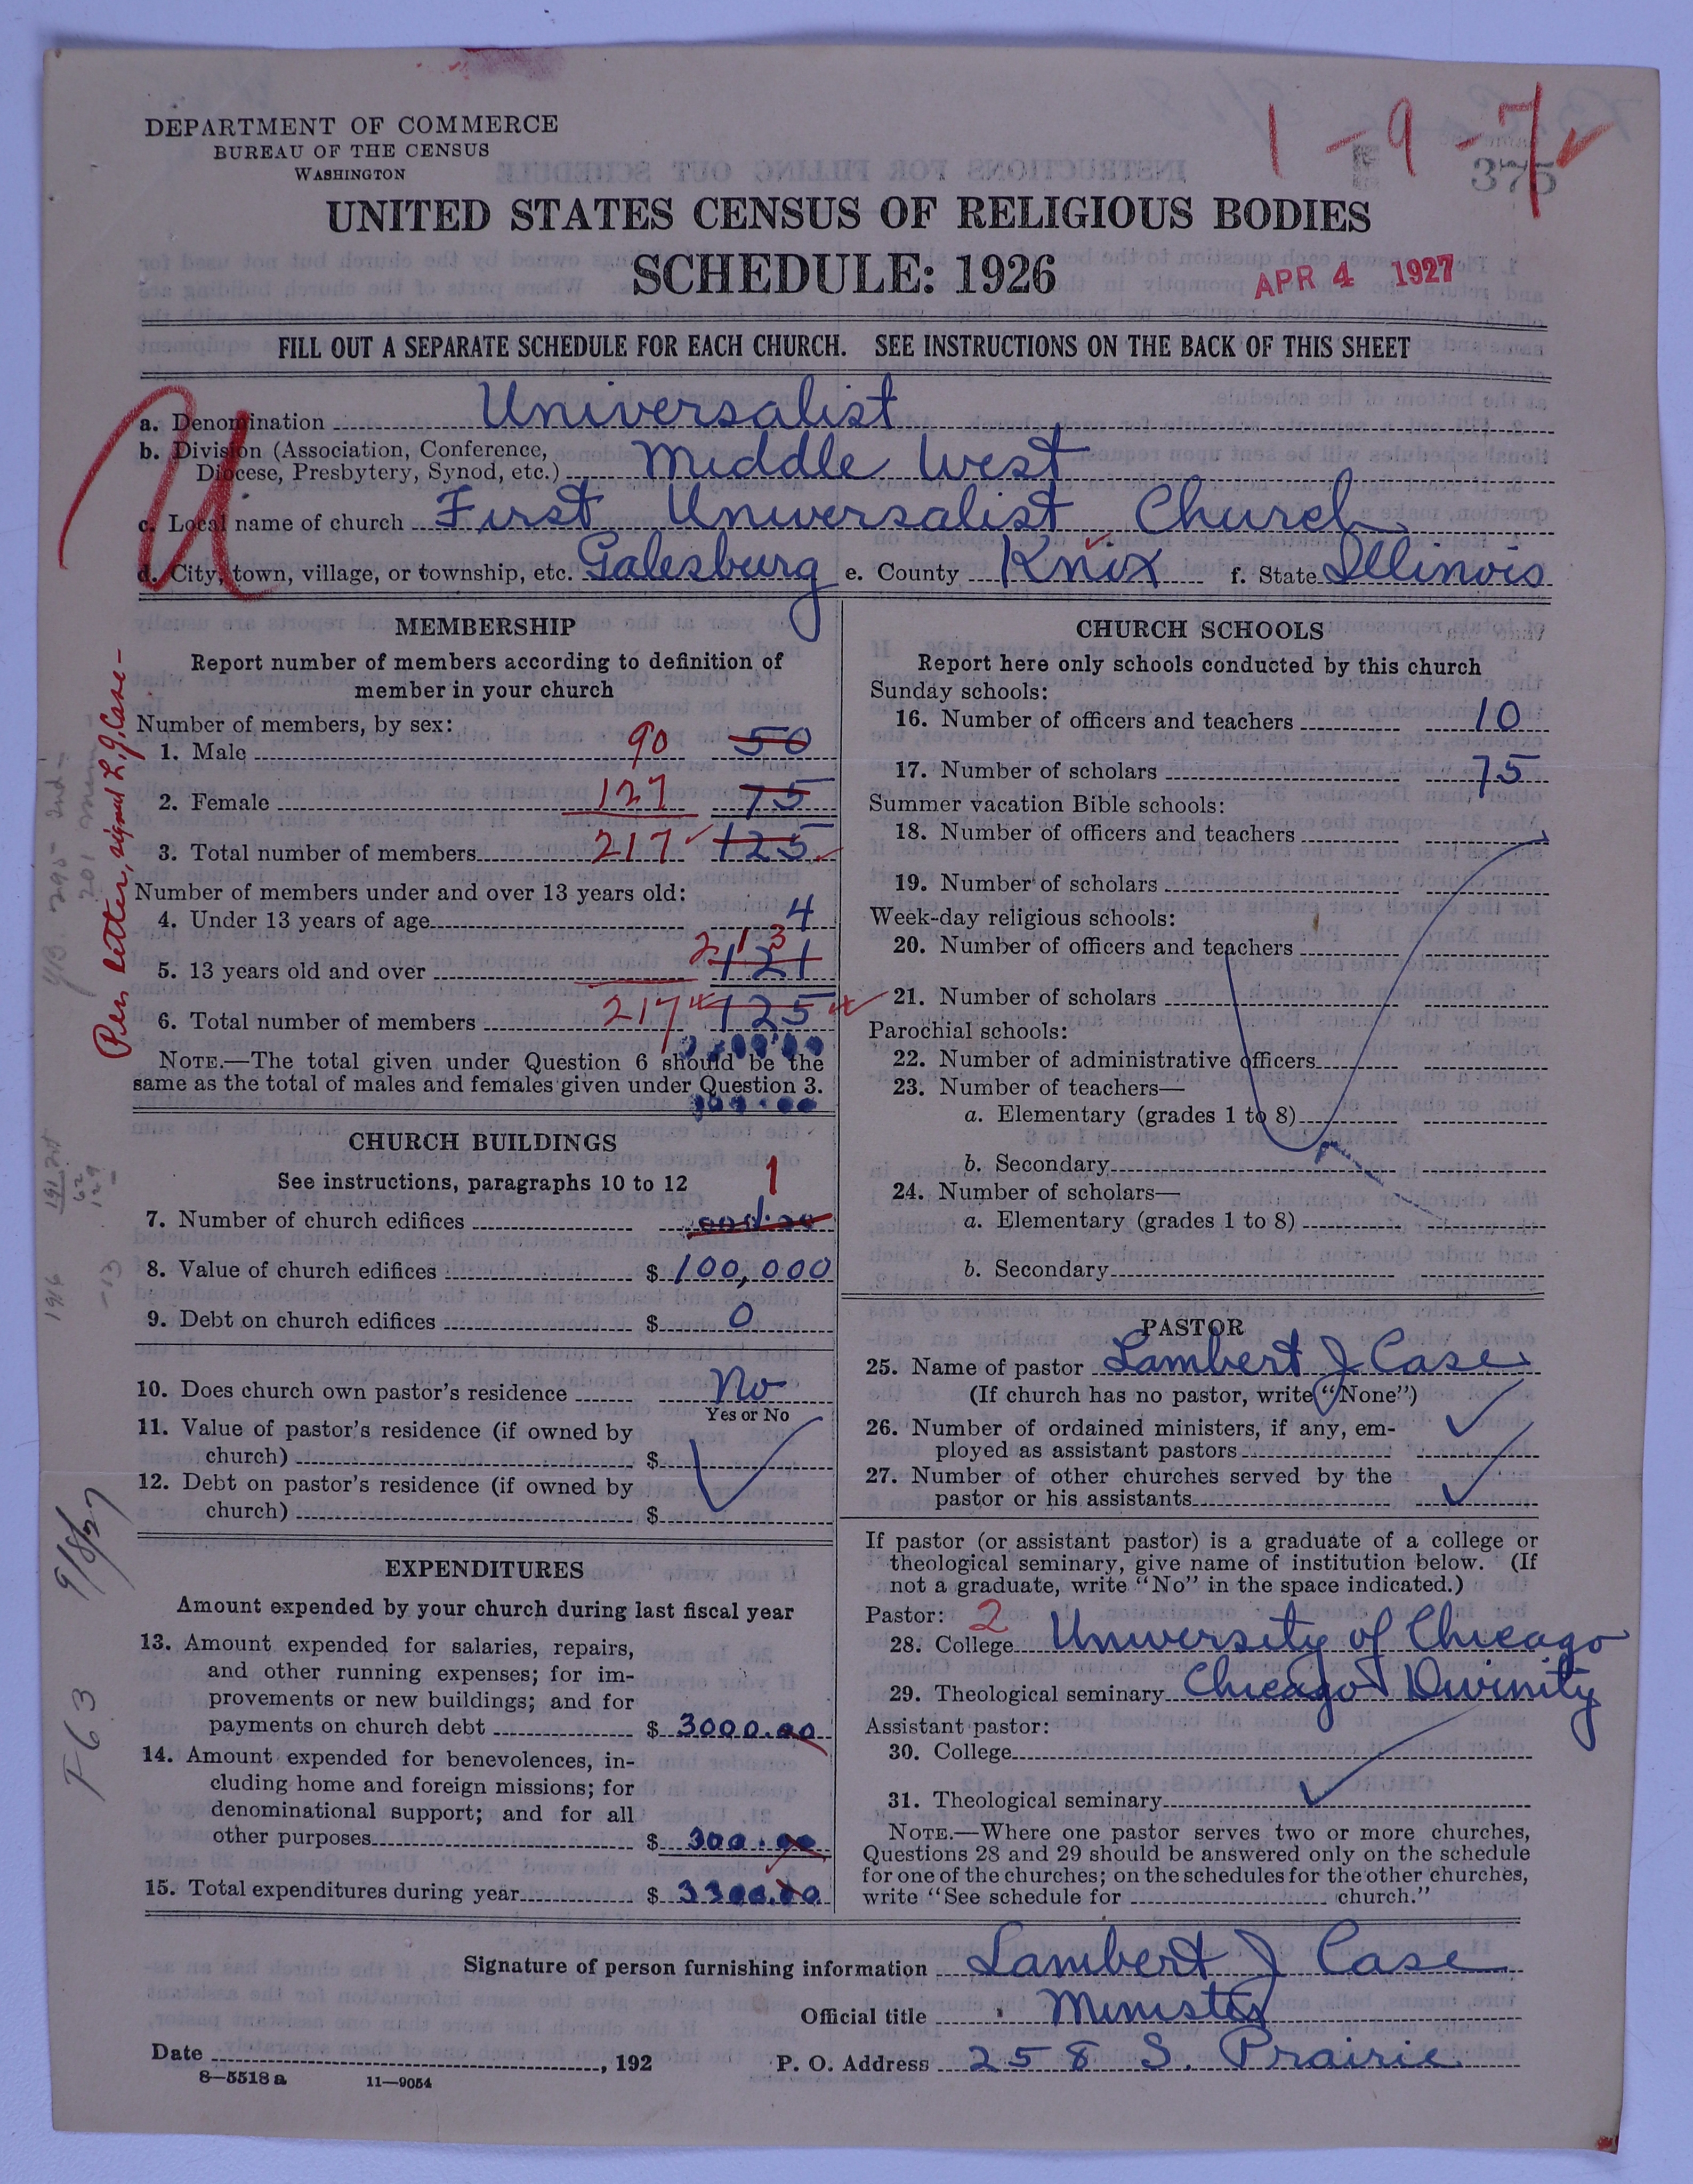 DEPARTMENT OF COMMERCE
BUREAU OF THE CENSUS
WASHINGTON
1-9-7
375
UNITED STATES CENSUS OF RELIGIOUS BODIES
SCHEDULE: 1926
APR 4 1927
FILL OUT A SEPARATE SCHEDULE FOR EACH CHURCH. SEE INSTRUCTIONS ON THE BACK OF THIS SHEET
U
a. Denomination Universalist
b. Division (Association, Conference,
Diocese, Presbytery, Synod, etc.) Middle West
c. Local name of church First Universalist Church
d. City, town, village, or township, etc. Galesburg e. County Knox f. State Illinois
MEMBERSHIP
Report number of members according to definition of
member in your church
Number of members, by sex:
1. Male 90 50
2. Female 127 75
3. Total number of members 217 125
Number of members under and over 13 years old:
4. Under 13 years of age 4
5. 13 years old and over 213 121
6. Total number of members 217 125
NOTE.—The total given under Question 6 should be the
same as the total of males and females given under Question 3.
Per letter, signed L. J. Case—
CHURCH BUILDINGS
See instructions, paragraphs 10 to 12
7. Number of church edifices 1
8. Value of church edifices $ 100,000
9. Debt on church edifices $ 0
10. Does church own pastor's residence No
Yes or No
11. Value of pastor's residence (if owned by
church) $
12. Debt on pastor's residence (if owned by
church) $
9/8/27
EXPENDITURES
Amount expended by your church during last fiscal year
13. Amount expended for salaries, repairs,
and other running expenses; for im-
provements or new buildings; and for
payments on church debt $ 3000.00
14. Amount expended for benevolences, in-
cluding home and foreign missions; for
denominational support; and for all
other purposes $ 300.00
15. Total expenditures during year $ 3300.00
CHURCH SCHOOLS
Report here only schools conducted by this church
Sunday schools:
16. Number of officers and teachers 10
17. Number of scholars 75
Summer vacation Bible schools:
18. Number of officers and teachers
19. Number of scholars
Week-day religious schools:
20. Number of officers and teachers
21. Number of scholars
Parochial schools:
22. Number of administrative officers
23. Number of teachers—
a. Elementary (grades 1 to 8)
b. Secondary
24. Number of scholars—
a. Elementary (grades 1 to 8)
b. Secondary
PASTOR
25. Name of pastor Lambert J Case
(If church has no pastor, write "None")
26. Number of ordained ministers, if any, em-
ployed as assistant pastors
27. Number of other churches served by the
pastor or his assistants
If pastor (or assistant pastor) is a graduate of a college or
theological seminary, give name of institution below. (If
not a graduate, write "No" in the space indicated.)
Pastor: 2
28. College University of Chicago
29. Theological seminary Chicago Divinity
Assistant pastor:
30. College
31. Theological seminary
NOTE.—Where one pastor serves two or more churches,
Questions 28 and 29 should be answered only on the schedule
for one of the churches; on the schedules for the other churches,
write "See schedule for church."
Signature of person furnishing information Lambert J Case
Official title Minister
Date , 192 P. O. Address 258 S. Prairie
8-5518 a 11-9054